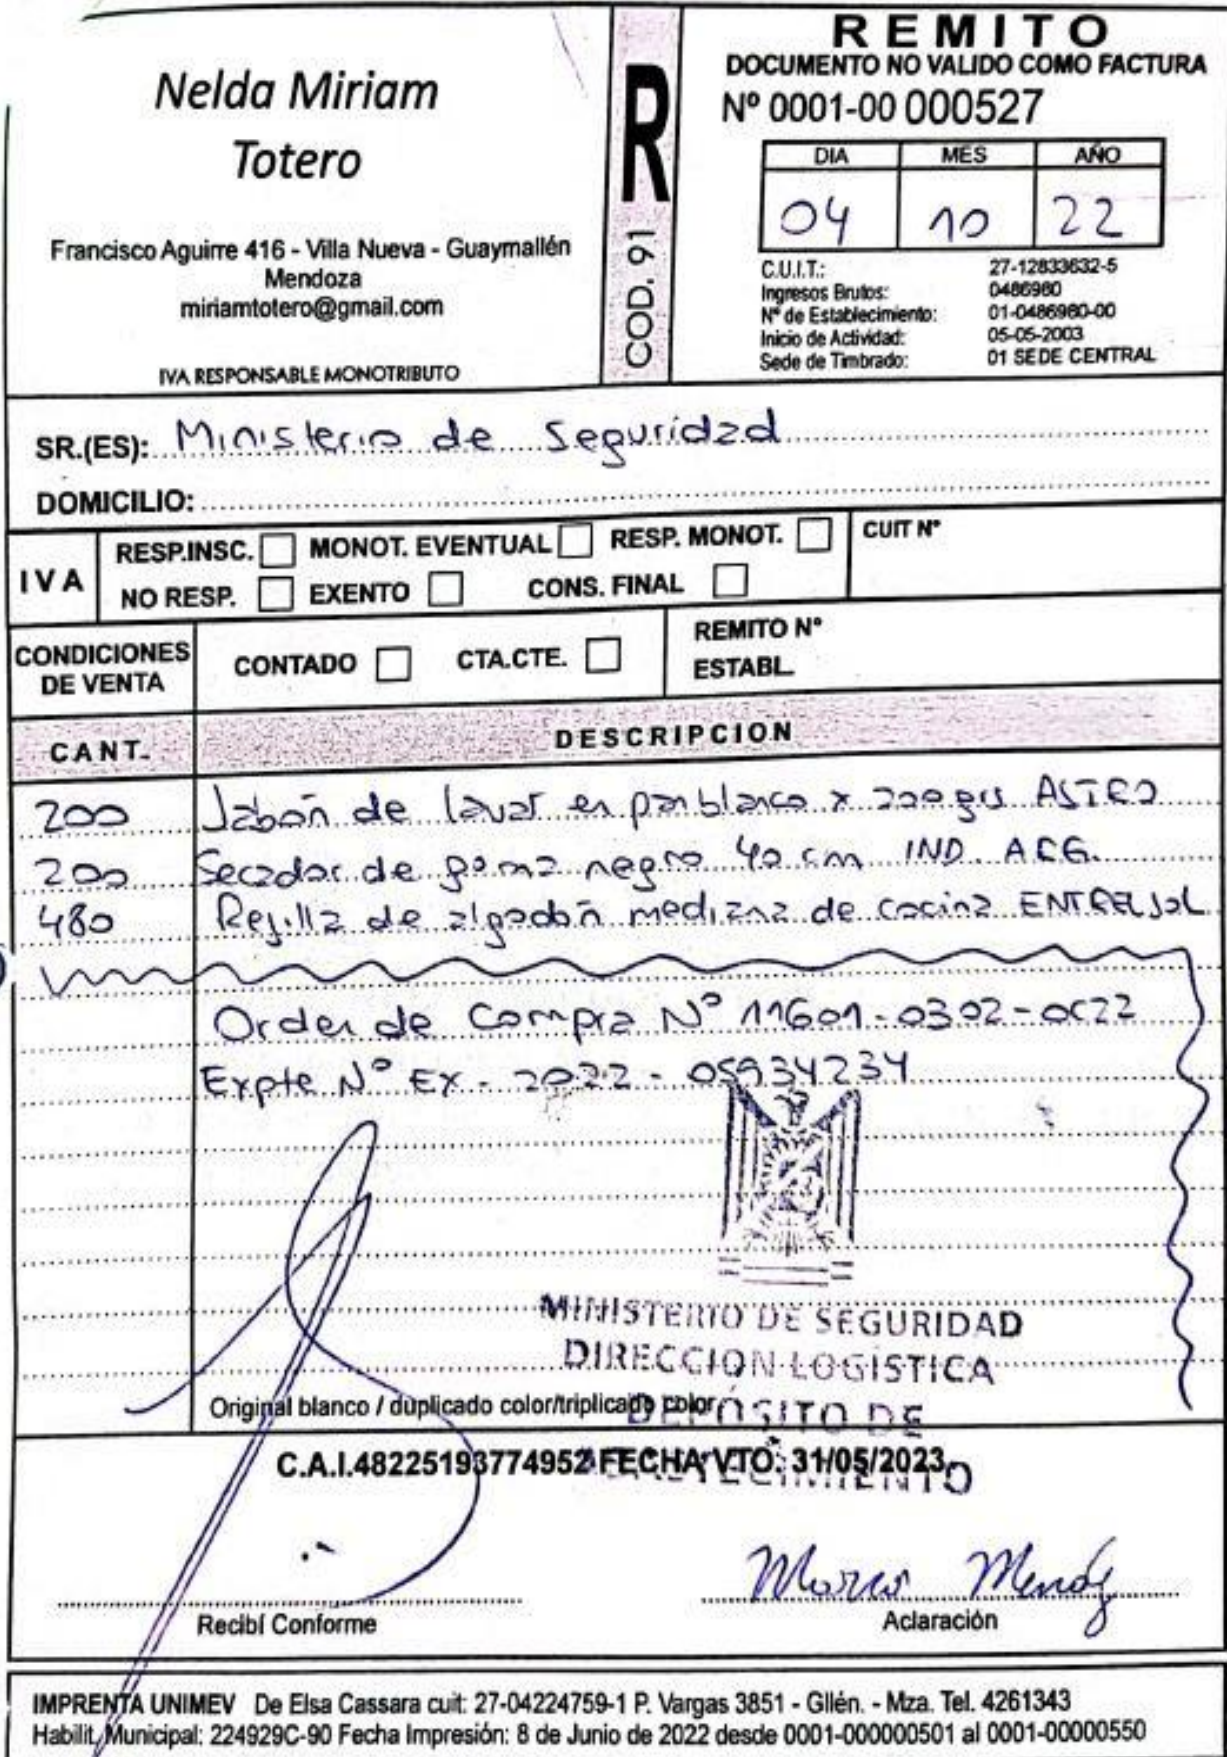 Nelda Miriam
Totero
Francisco Aguirre 416 - Villa Nueva - Guaymallén
Mendoza
miriamtotero@gmail.com
IVA RESPONSABLE MONOTRIBUTO
R
COD. 91
REMITO
DOCUMENTO NO VALIDO COMO FACTURA
Nº 0001-00 000527
DIA MES AÑO
04 10 22
C.U.I.T.: 27-12833632-5
Ingresos Brutos: 0486980
Nº de Establecimiento: 01-0486980-00
Inicio de Actividad: 05-05-2003
Sede de Timbrado: 01 SEDE CENTRAL
SR.(ES): Ministerio de Seguridad
DOMICILIO:
IVA RESP.INSC. MONOT. EVENTUAL RESP. MONOT. CUIT Nº
NO RESP. EXENTO CONS. FINAL
CONDICIONES DE VENTA CONTADO CTA.CTE. REMITO Nº
ESTABL.
CANT. DESCRIPCION
200 Jabón de lavar en pan blanco x 200 grs ASTRO
200 Secador de goma negro 40 cm IND. ARG.
480 Rejilla de algodón mediana de cocina
Orden de Compra Nº 11601-0302-OC22
Expte Nº EX - 2022 - 05934234
MINISTERIO DE SEGURIDAD
DIRECCION LOGISTICA
DEPOSITO DE
Original blanco / duplicado color/triplicado color
C.A.I.48225193774952 FECHA VTO: 31/05/2023
Recibí Conforme
Aclaración
IMPRENTA UNIMEV De Elsa Cassara cuit: 27-04224759-1 P. Vargas 3851 - Gllén. - Mza. Tel. 4261343
Habilit. Municipal: 224929C-90 Fecha Impresión: 8 de Junio de 2022 desde 0001-000000501 al 0001-00000550